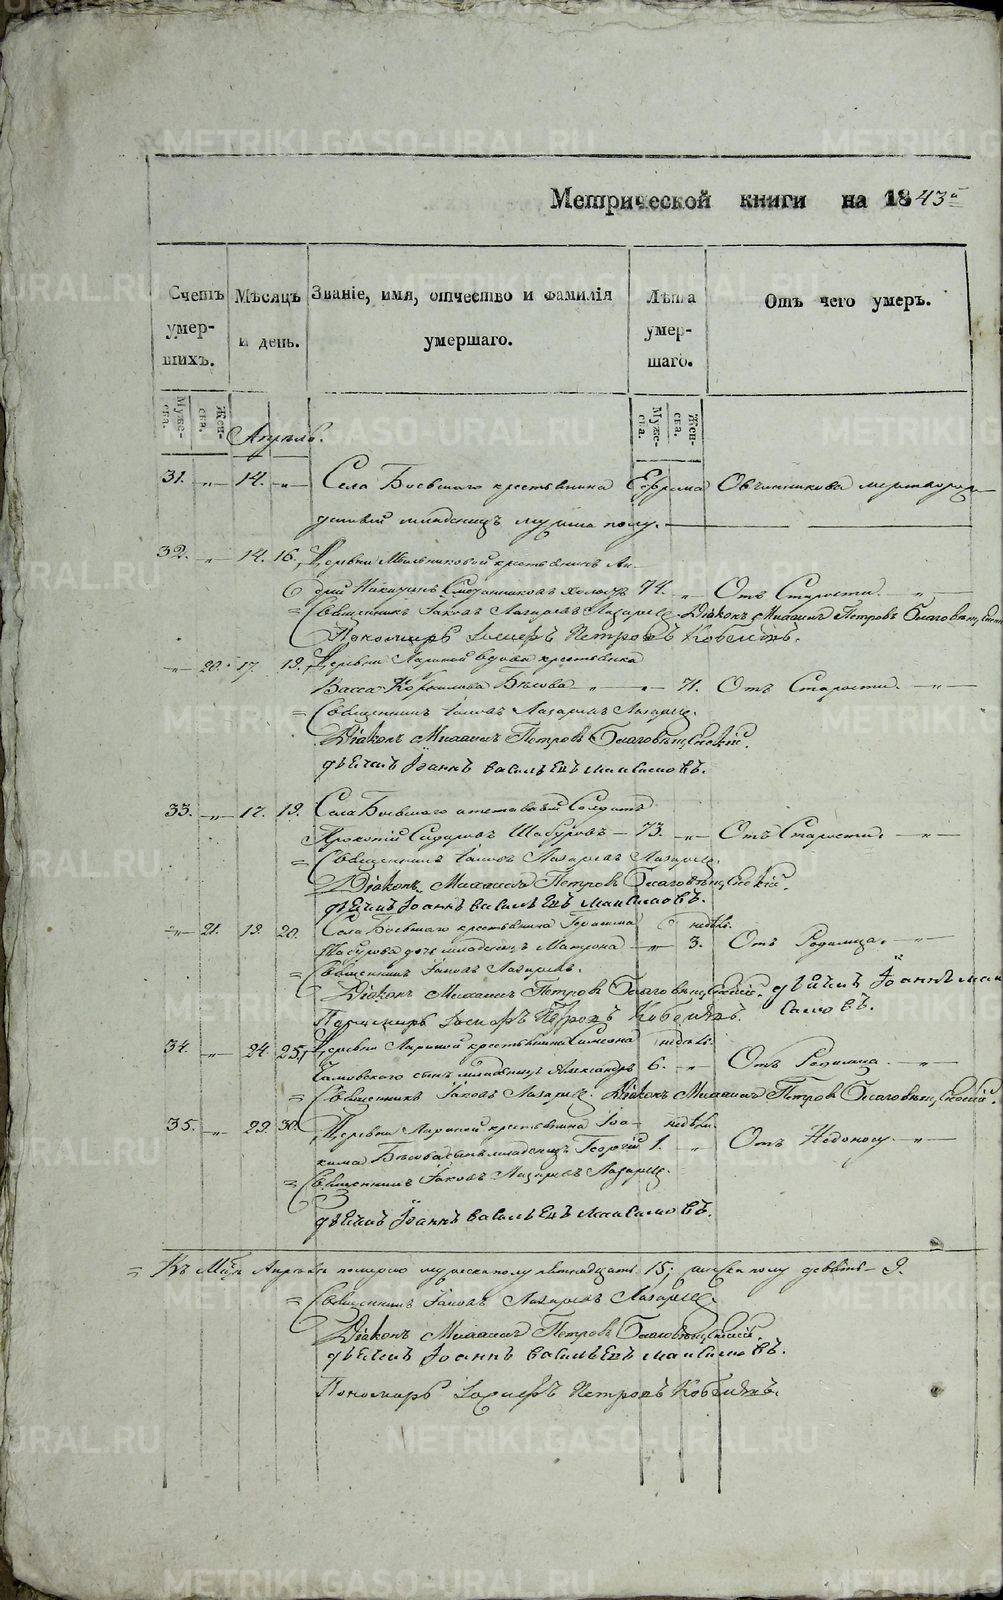 Метрической книги на 1843й
Счетъ умершихъ.
Мѣсяцъ и день.
Званіе, имя, отчество и фамилія умершаго.
Лѣта умершаго.
Отъ чего умеръ.
Мужеска. Женска.
Мужеска. Женска.
Апрѣль.
31. „ 14. „ Села Боевскаго крестьянина Ефрема Овчинникова мертворож-
денный младенецъ мужеска полу.
32. „ 14. 16. Деревни крестьянинъ Ан-
дрей Никитинъ холостъ 74. „ Отъ Старости. „
Священникъ Іаковъ Лазаревъ Лазаревъ. Діаконъ Михаилъ Петровъ Благовѣщенскій
Пономарь Іосифъ Петровъ
„ 20. 17. 19. Деревни Лариной вдова крестьянка
Васса Корнилова Бѣсова „ „ 71. Отъ Старости. „
Священникъ Іаковъ Лазаревъ Лазаревъ.
Діаконъ Михаилъ Петровъ Благовѣщенскій.
дьячекъ Іоаннъ Васильевъ Максимовъ.
33. „ 17. 19. Села Боевскаго отставной Солдатъ
Прокопій Сидоровъ Шабуровъ 73. „ Отъ Старости. „
Священникъ Іаковъ Лазаревъ Лазаревъ.
Діаконъ Михаилъ Петровъ Благовѣщенскій.
дьячекъ Іоаннъ Васильевъ Максимовъ.
„ 21. 19. 20. Села Боевскаго крестьянина недѣль.
Шабурова дочь младенецъ Матрона „ 3. Отъ Родимца. „
Священникъ Іаковъ Лазаревъ.
Діаконъ Михаилъ Петровъ Благовѣщенскій. дьячекъ Іоаннъ Мак
Пономарь Іосифъ Петровъ симовъ.
34. „ 24. 25. Деревни Лариной крестьянина Симеона недѣль
сынъ младенецъ Александръ 6. „ Отъ Родимца „
Священникъ Іаковъ Лазаревъ. Діаконъ Михаилъ Петровъ Благовѣщенскій.
35. „ 29. 30. Деревни Лариной крестьянина Іоа- недѣли.
кима Бѣсова сынъ младенецъ Георгій 1. „ Отъ Недоносу. „
Священникъ Іаковъ Лазаревъ Лазаревъ.
дьячекъ Іоаннъ Васильевъ Максимовъ.
Въ Мцѣ Апрѣлѣ померло мужеска полу пятнадцать 15; женска полу девять 9.
Священникъ Іаковъ Лазаревъ Лазаревъ.
Діаконъ Михаилъ Петровъ Благовѣщенскій.
дьячекъ Іоаннъ Васильевъ Максимовъ.
Пономарь Іосифъ Петровъ
METRIKI.GASO-URAL.RU